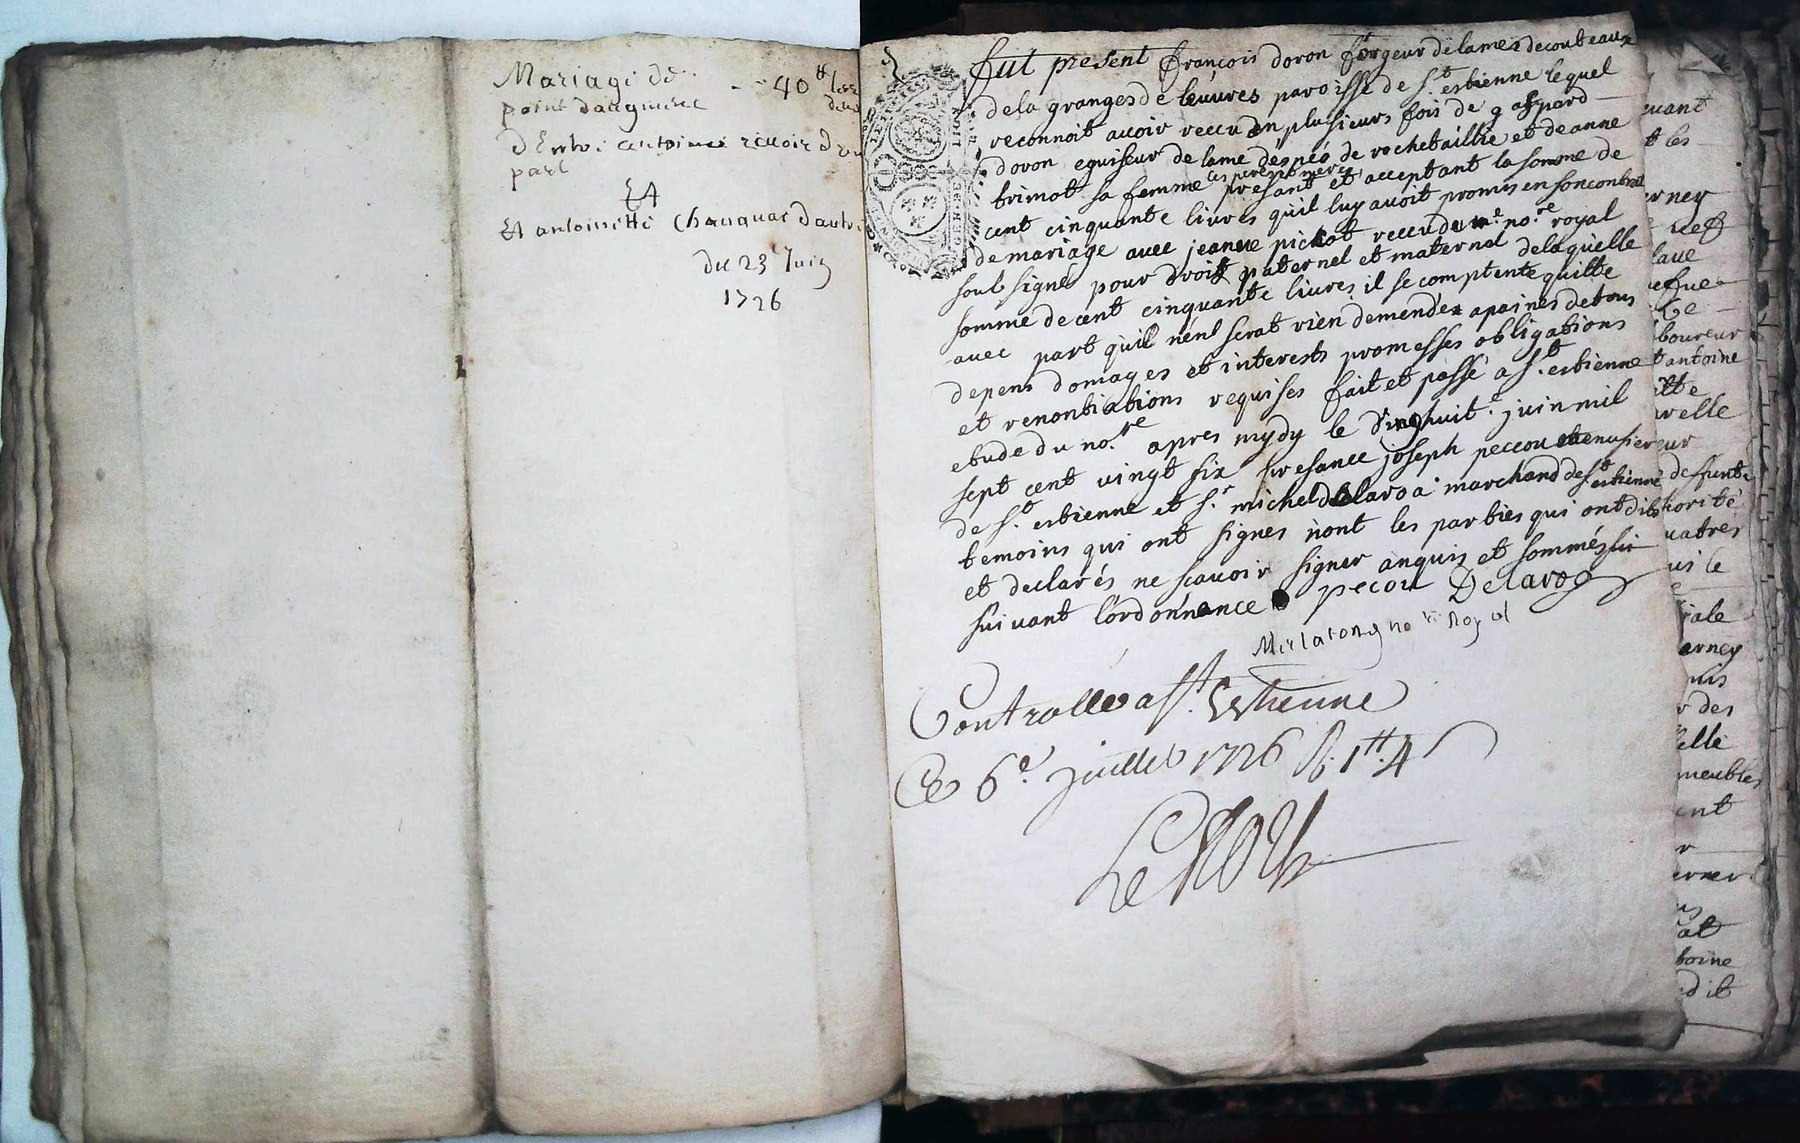 Mariage de
point daugment
Entre antoine
part
Et
Et antoinette Chauguat dautre
Du 23e Juin
1726
40tt
fut present françois doron forgeur de lames de couteaux
de la granges de leuures paroisse de st. estienne lequel
reconnoit auoir receu en plusieurs fois de gaspard
doron eguiseur de lame despeés de rochetaillié et de anne
trimot sa femme ses pere et mere presant et acceptant la somme de
cent cinquante liures qu'il luy auoit promis en son contrat
de mariage auec jeanne pichot receu du me. no.re royal
soub signé pour droit paternel et maternel de laquelle
somme de cent cinquante liures il se comptente quitte
auec part quil nenl serat rien demender apaines de tous
depens domages et interests promesses obligations
et renontiations requises fait et passé a st. estienne
etude du no.re apres mydy le vinghuit.e juin mil
sept cent vingt six presance joseph peccou menusier
de st. estienne et sr. michel delaroa marchand de st. estienne
temoins qui ont signes nont les parties qui ont dits
et declarés ne scauoir signer anquis et sommés
suiuant lordonnance pecou Delaroa
no.re Royal
Controllé a st. Estienne
Ce 6e. juillet 1726 R. 1tt. 4s
Le
uant
t les
erney
laue
boureur
t antoine
itte
uelle
eur
defunt
horité
uatres
ui le
iale
arney
puis
r des
elle
meubles
ent
r
erner
us
at
toine
dit